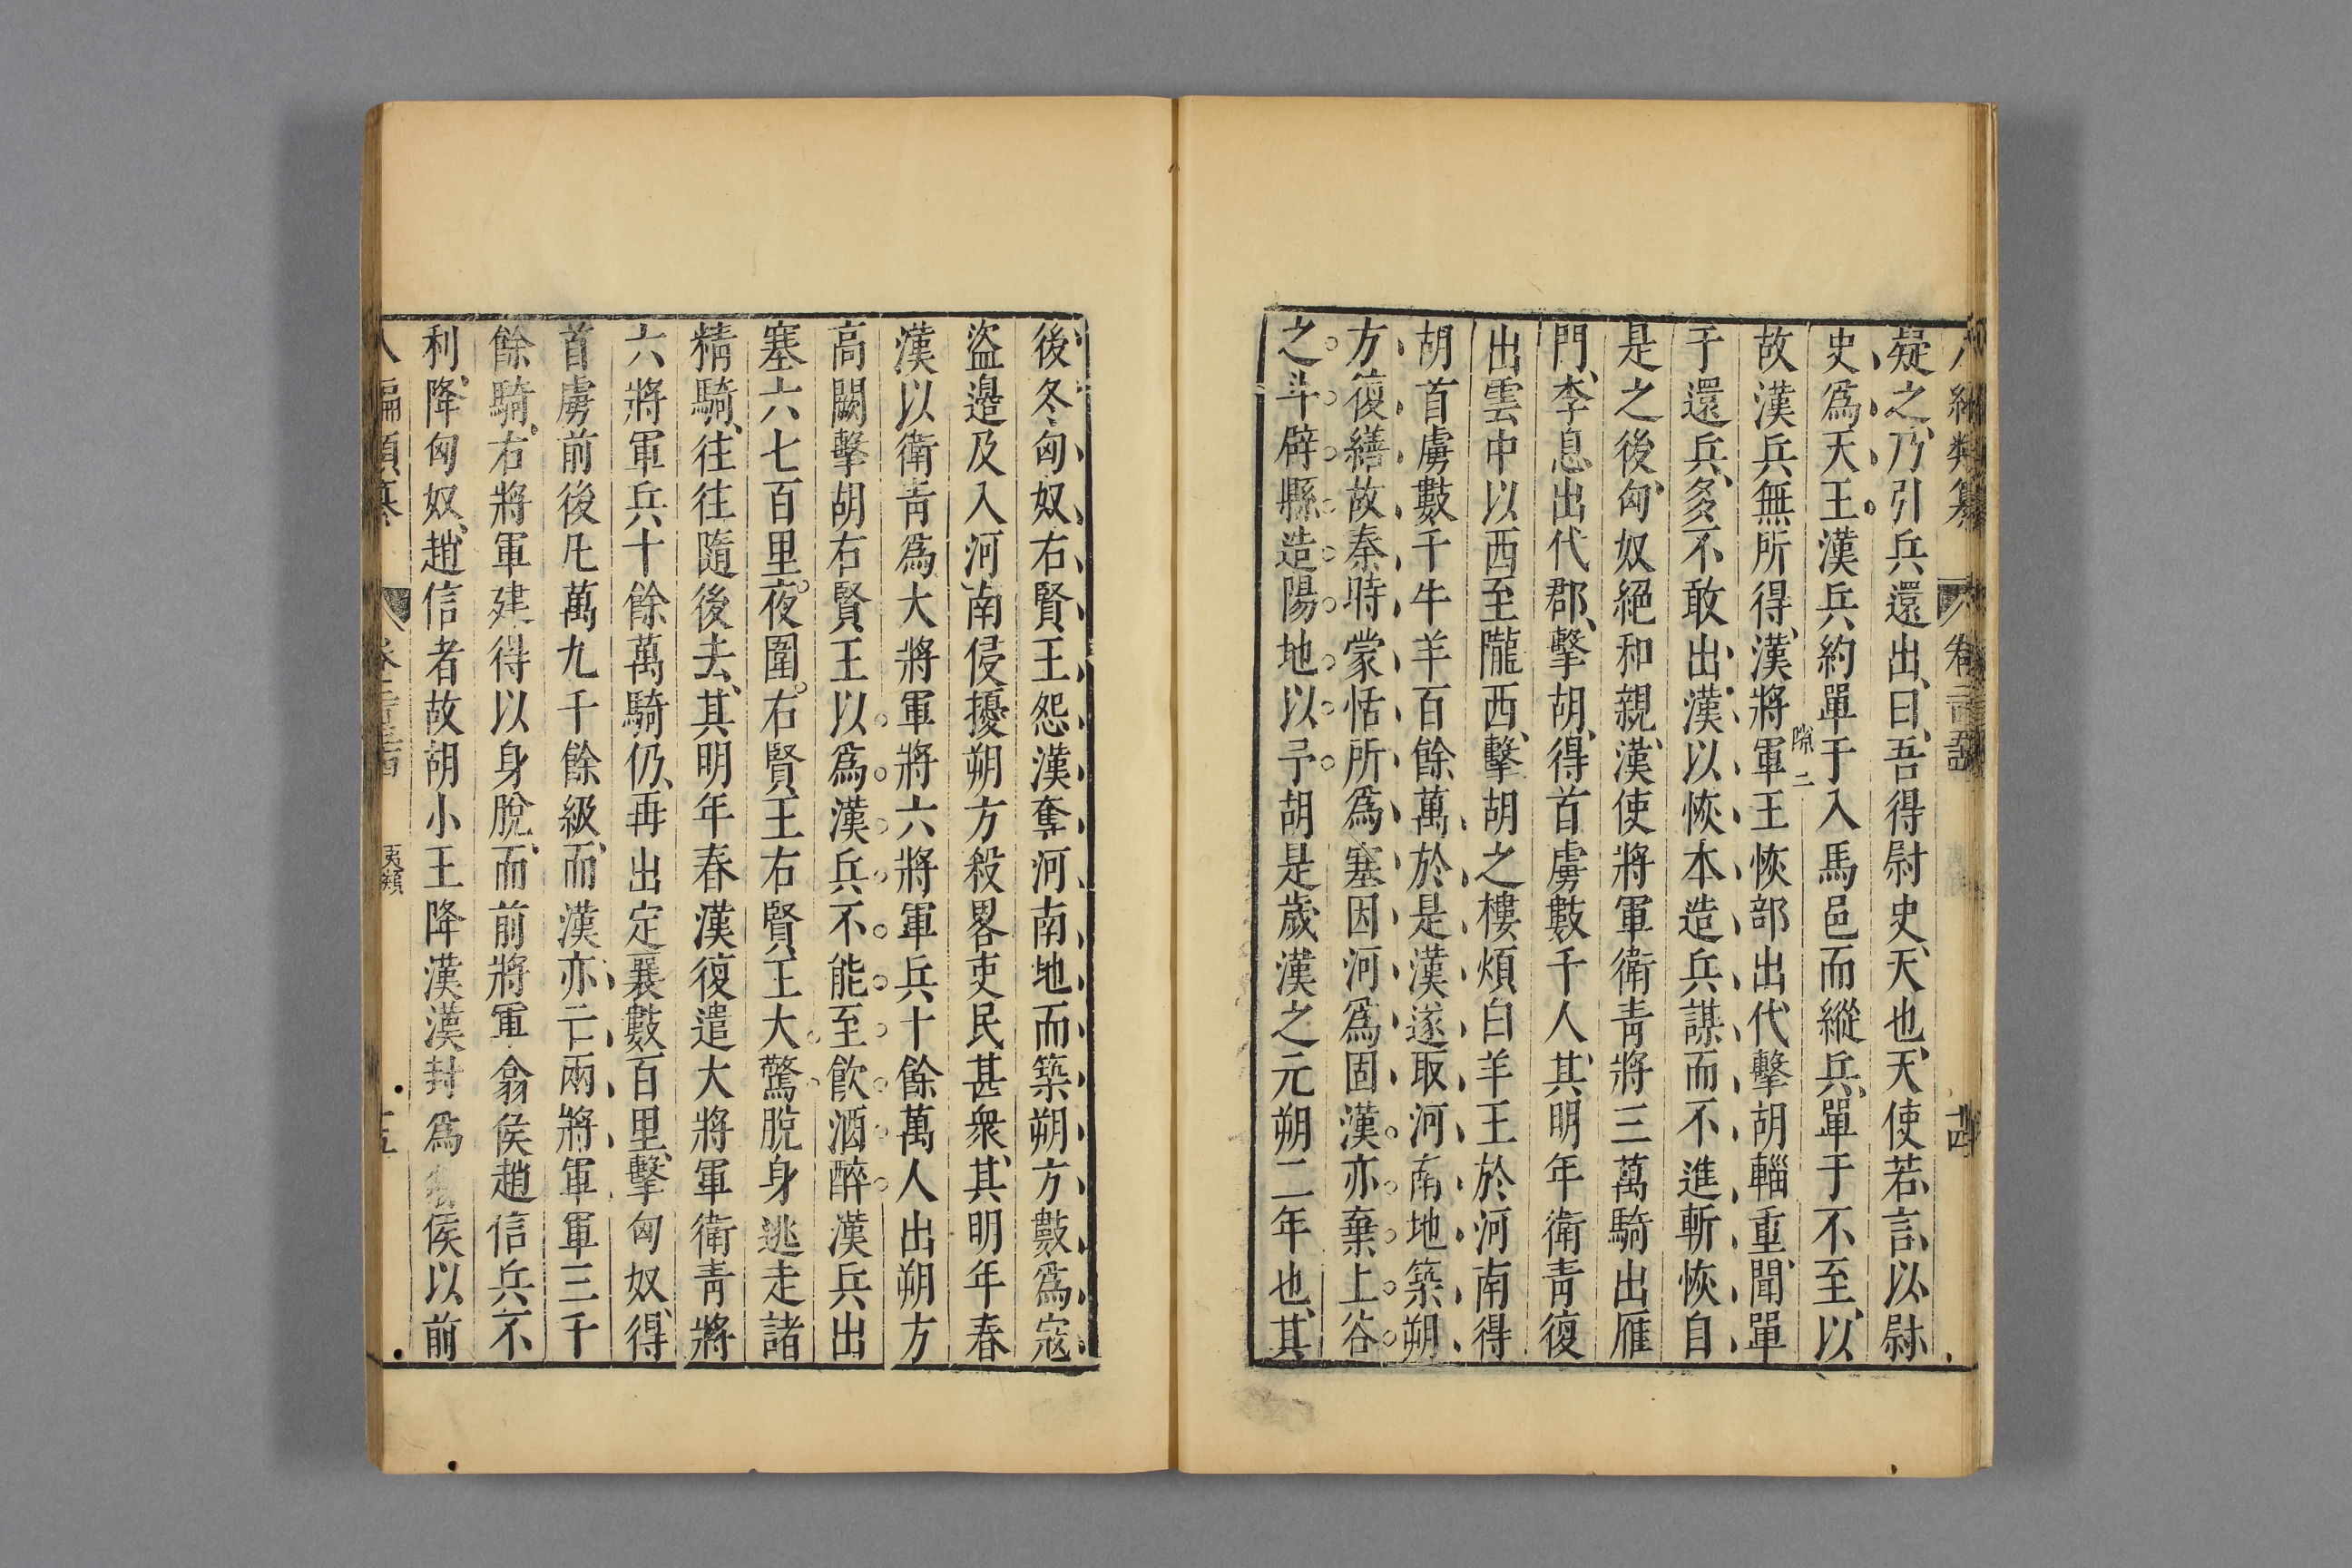 疑之乃引兵還出曰吾得尉史天也天使若言以尉
史爲天王漢兵約單于入馬邑而縱兵單于不至以
隙二
故漢兵無所得漢將軍王恢部出代擊胡輜重聞單
于還兵多不敢出漢以恢本造兵謀而不進斬恢自
是之後匈奴絕和親漢使將軍衛青將三萬騎出雁
門李息出代郡擊胡得首虜數千人其明年衛青復
出雲中以西至隴西擊胡之樓煩白羊王於河南得
胡首虜數千牛羊百餘萬於是漢遂取河南地築朔
方復繕故秦時蒙恬所爲塞因河爲固漢亦棄上谷
之斗辟縣造陽地以予胡是歲漢之元朔二年也其
後冬匈奴右賢王怨漢奪河南地而築朔方數爲寇
盜邊及入河南侵擾朔方殺畧吏民甚衆其明年春
漢以衛青爲大將軍將六將軍兵十餘萬人出朔方
高闕擊胡右賢王以爲漢兵不能至飮酒醉漢兵出
塞六七百里夜圍右賢王右賢王大驚脫身逃走諸
精騎往往隨後去其明年春漢復遣大將軍衛青將
六將軍兵十餘萬騎仍再出定襄數百里擊匈奴得
首虜前後凡萬九千餘級而漢亦亡兩將軍軍三千
餘騎右將軍建得以身脫而前將軍翕侯趙信兵不
利降匈奴趙信者故胡小王降漢漢封爲翕侯以前
夷類